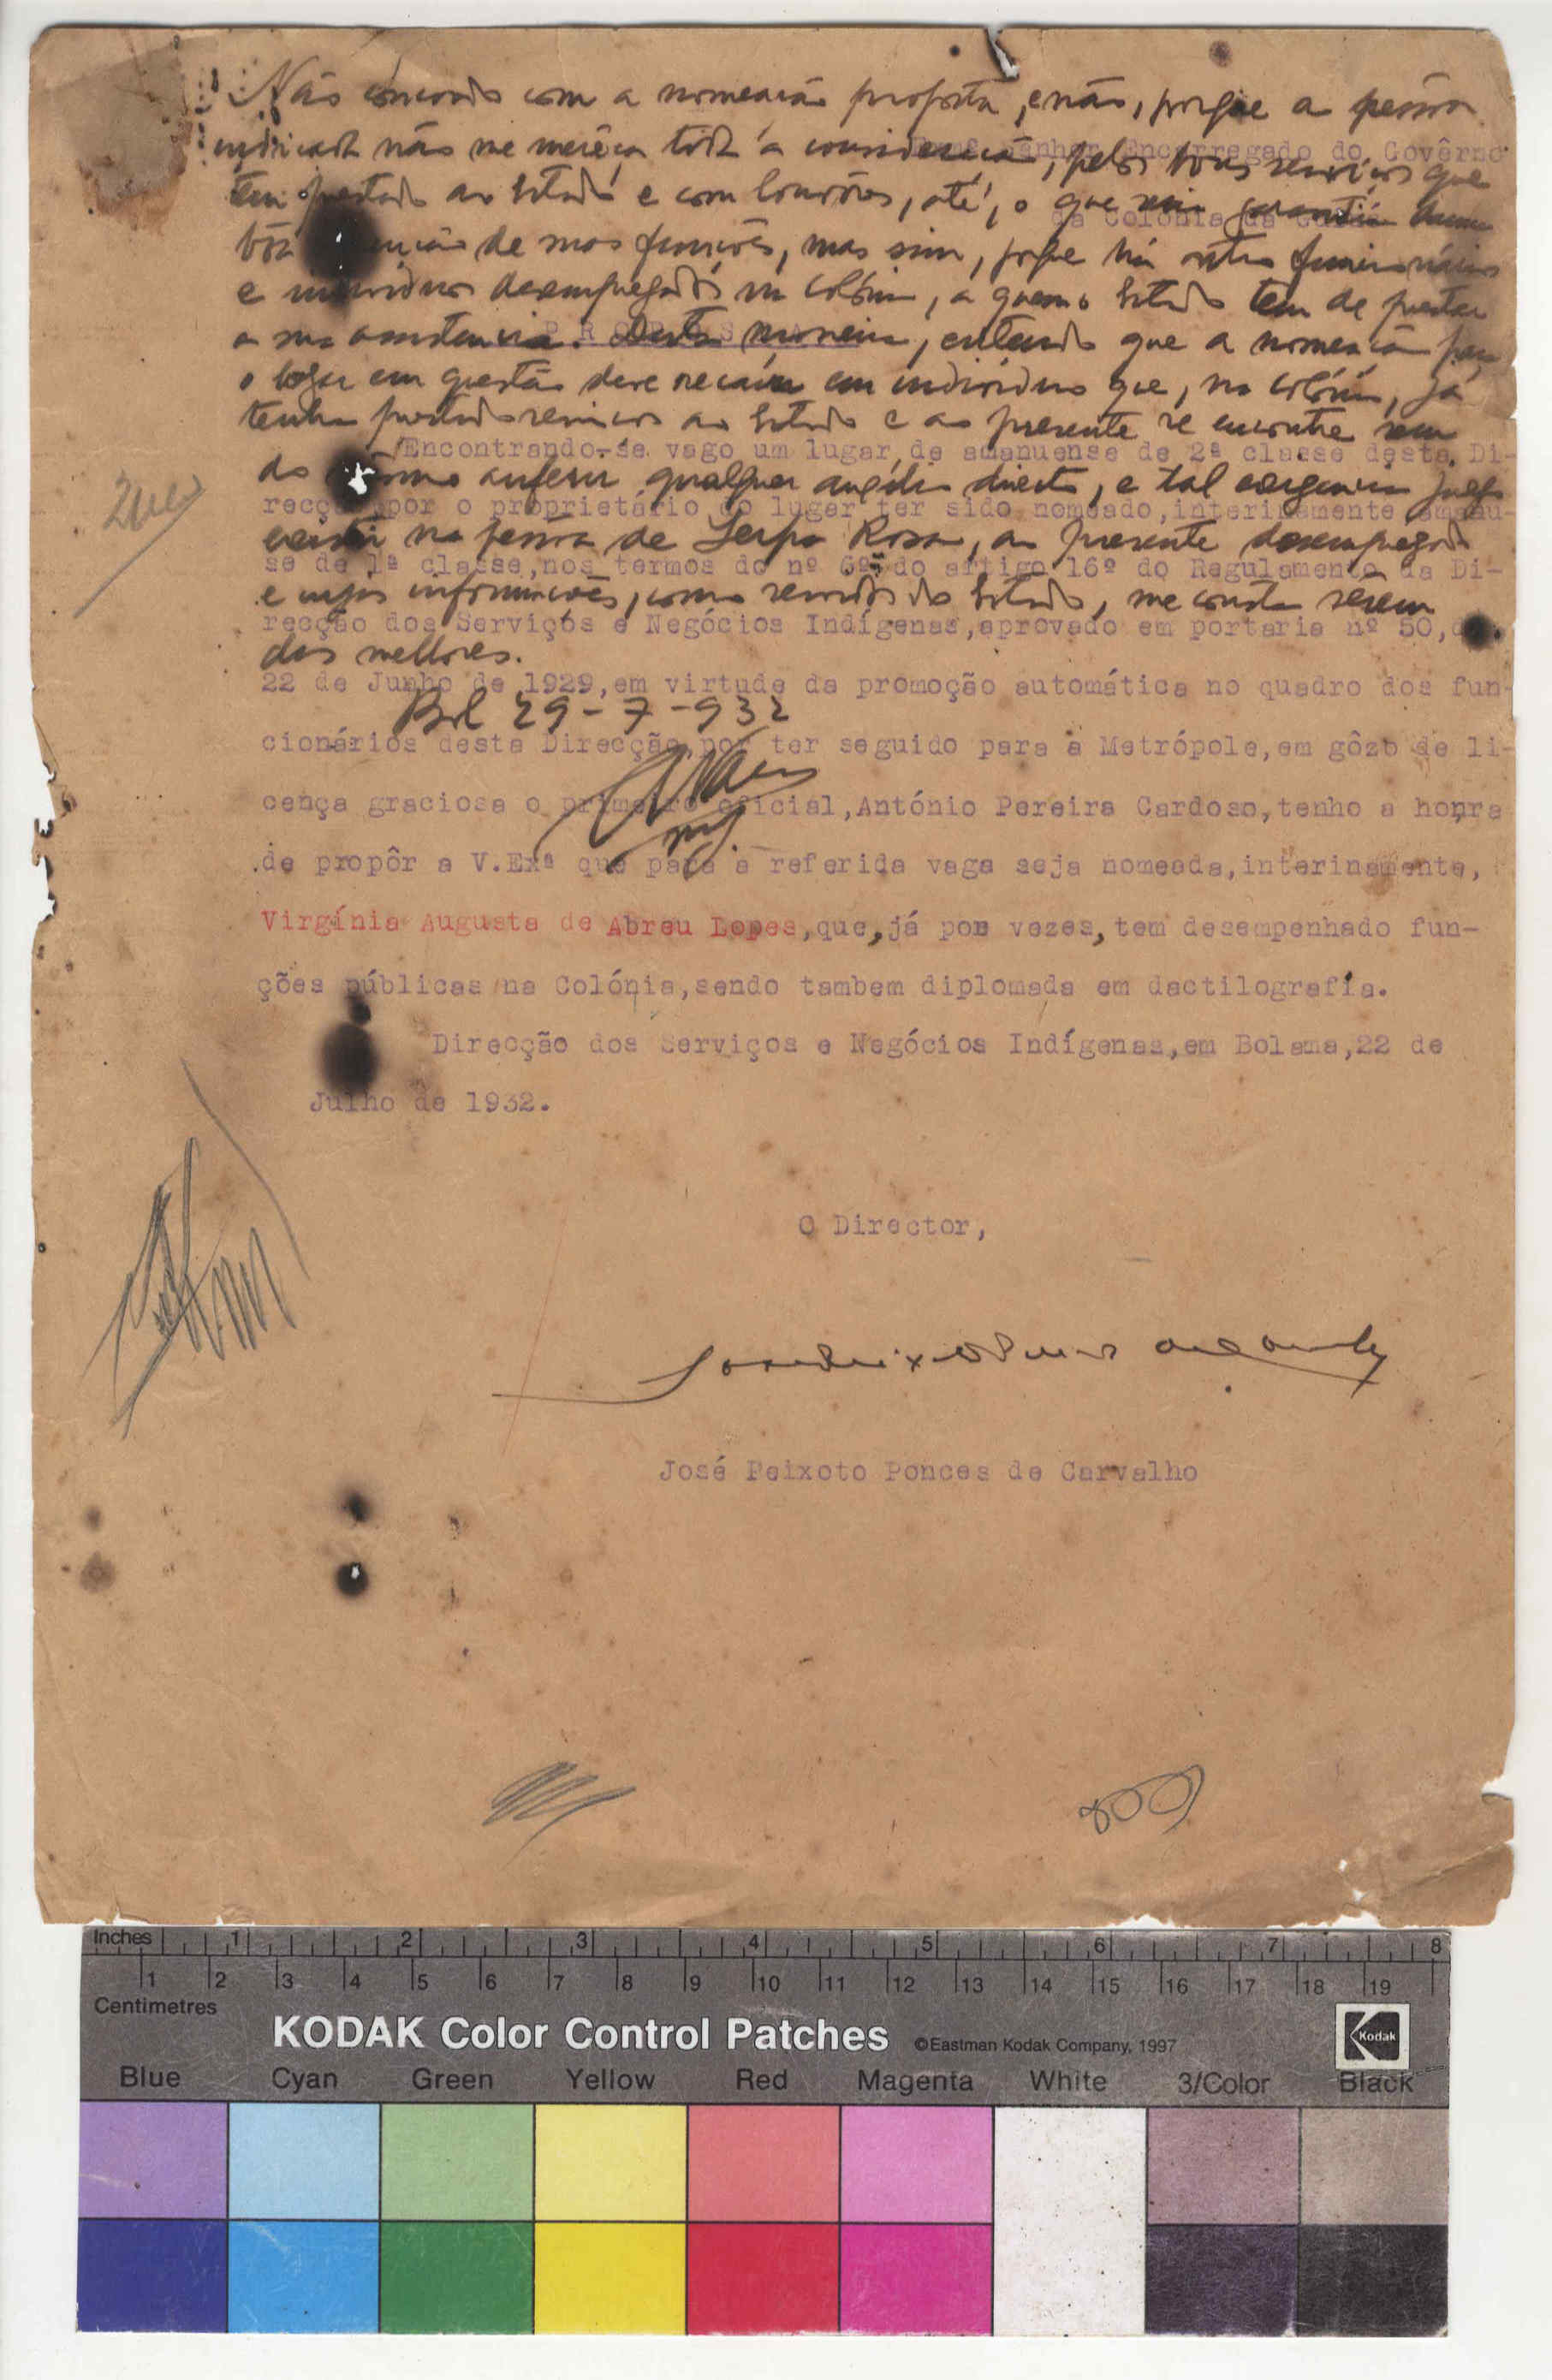 Não concordo com a nomeação proposta, e não, porque a pessôa
indicada não me mereça toda a consideração, pelos bons serviços que
tem prestado ao Estado e com louvôres, até, o que
bôa de suas funções, mas sim, porque há outros funcionários
e individuos desempregados na colónia, a quem o Estado tem de prestar
a sua assistencia. Desta maneira, entendo que a nomeação para
o logar em questão deve recair em individuos que, na colónia, já
tenha prestado serviços ao Estado e ao presente se encontre sem
do mesmo auferir qualquer auxilio directo, e tal
existir na pessôa de Serpa Rosa, ao presente desempregado
e cujas informações, como servidor do Estado, me consta serem
das melhores.
Bol 29-7-932
Senhor Encarregado do Govêrno
da Colónia da
PROPOSTA
Encontrando-se vago um lugar de amanuense de 2ª classe desta Di-
recção por o proprietário do lugar ter sido nomeado, interinamente amanu-
se de 1ª classe, nos termos do nº 6º do artigo 16º do Regulamento da Di-
recção dos Serviços e Negócios Indígenas, aprovado em portaria nº 50,
22 de Junho de 1929, em virtude da promoção automática no quadro dos fun-
cionários desta Direcção por ter seguido para a Metrópole, em gôzo de li-
cença graciosa o primeiro oficial, António Pereira Cardoso, tenho a honra
de propôr a V.Exª que para a referida vaga seja nomeada, interinamente,
Virgínia Augusta de Abreu Lopes, que, já por vezes, tem desempenhado fun-
ções públicas na Colónia, sendo tambem diplomada em dactilografia.
Direcção dos Serviços e Negócios Indígenas, em Bolama, 22 de
Julho de 1932.
O Director,
José Peixoto Ponces de Carvalho
Inches 1 2 3 4 5 6 7 8
1 2 3 4 5 6 7 8 9 10 11 12 13 14 15 16 17 18 19
Centimetres
KODAK Color Control Patches ©Eastman Kodak Company, 1997 Kodak
Blue Cyan Green Yellow Red Magenta White 3/Color Black